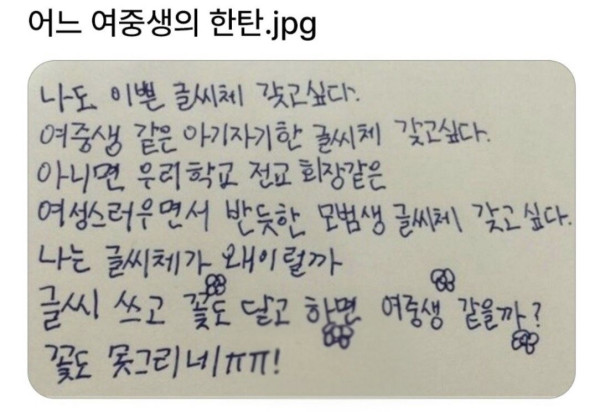 어느 여중생의 한탄.jpg
나도 이쁜 글씨체 갖고싶다.
여중생 같은 아기자기한 글씨체 갖고싶다.
아니면 우리학교 전교 회장같은
여성스러우면서 반듯한 모범생 글씨체 갖고 싶다.
나는 글씨체가 왜이럴까
글씨 쓰고 꽃도 달고 하면 여중생 같을까?
꽃도 못그리네ㅠㅠ!